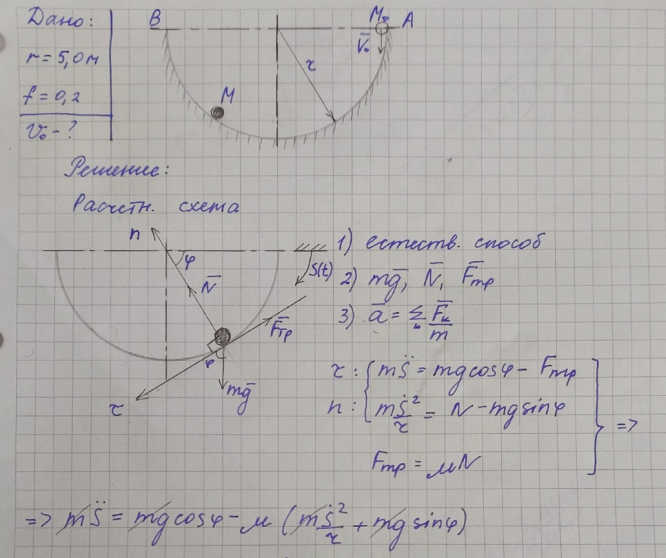 Дано:
r = 5,0 м
f = 0,2
V₀ - ?
B
M₀
A
V̄₀
r
M
Решение:
Расчетн. схема
n
φ
N̄
S(t)
F̄тр
φ
mḡ
τ
1) естеств. способ
2) mḡ, N̄, F̄тр
3) ā = Σ F̄ₖ/m
τ: { mS̈ = mg cosφ - Fтр
n: { mṠ²/r = N - mg sinφ
Fтр = μN
} =>
=> mS̈ = mg cosφ - μ (mṠ²/r + mg sinφ)